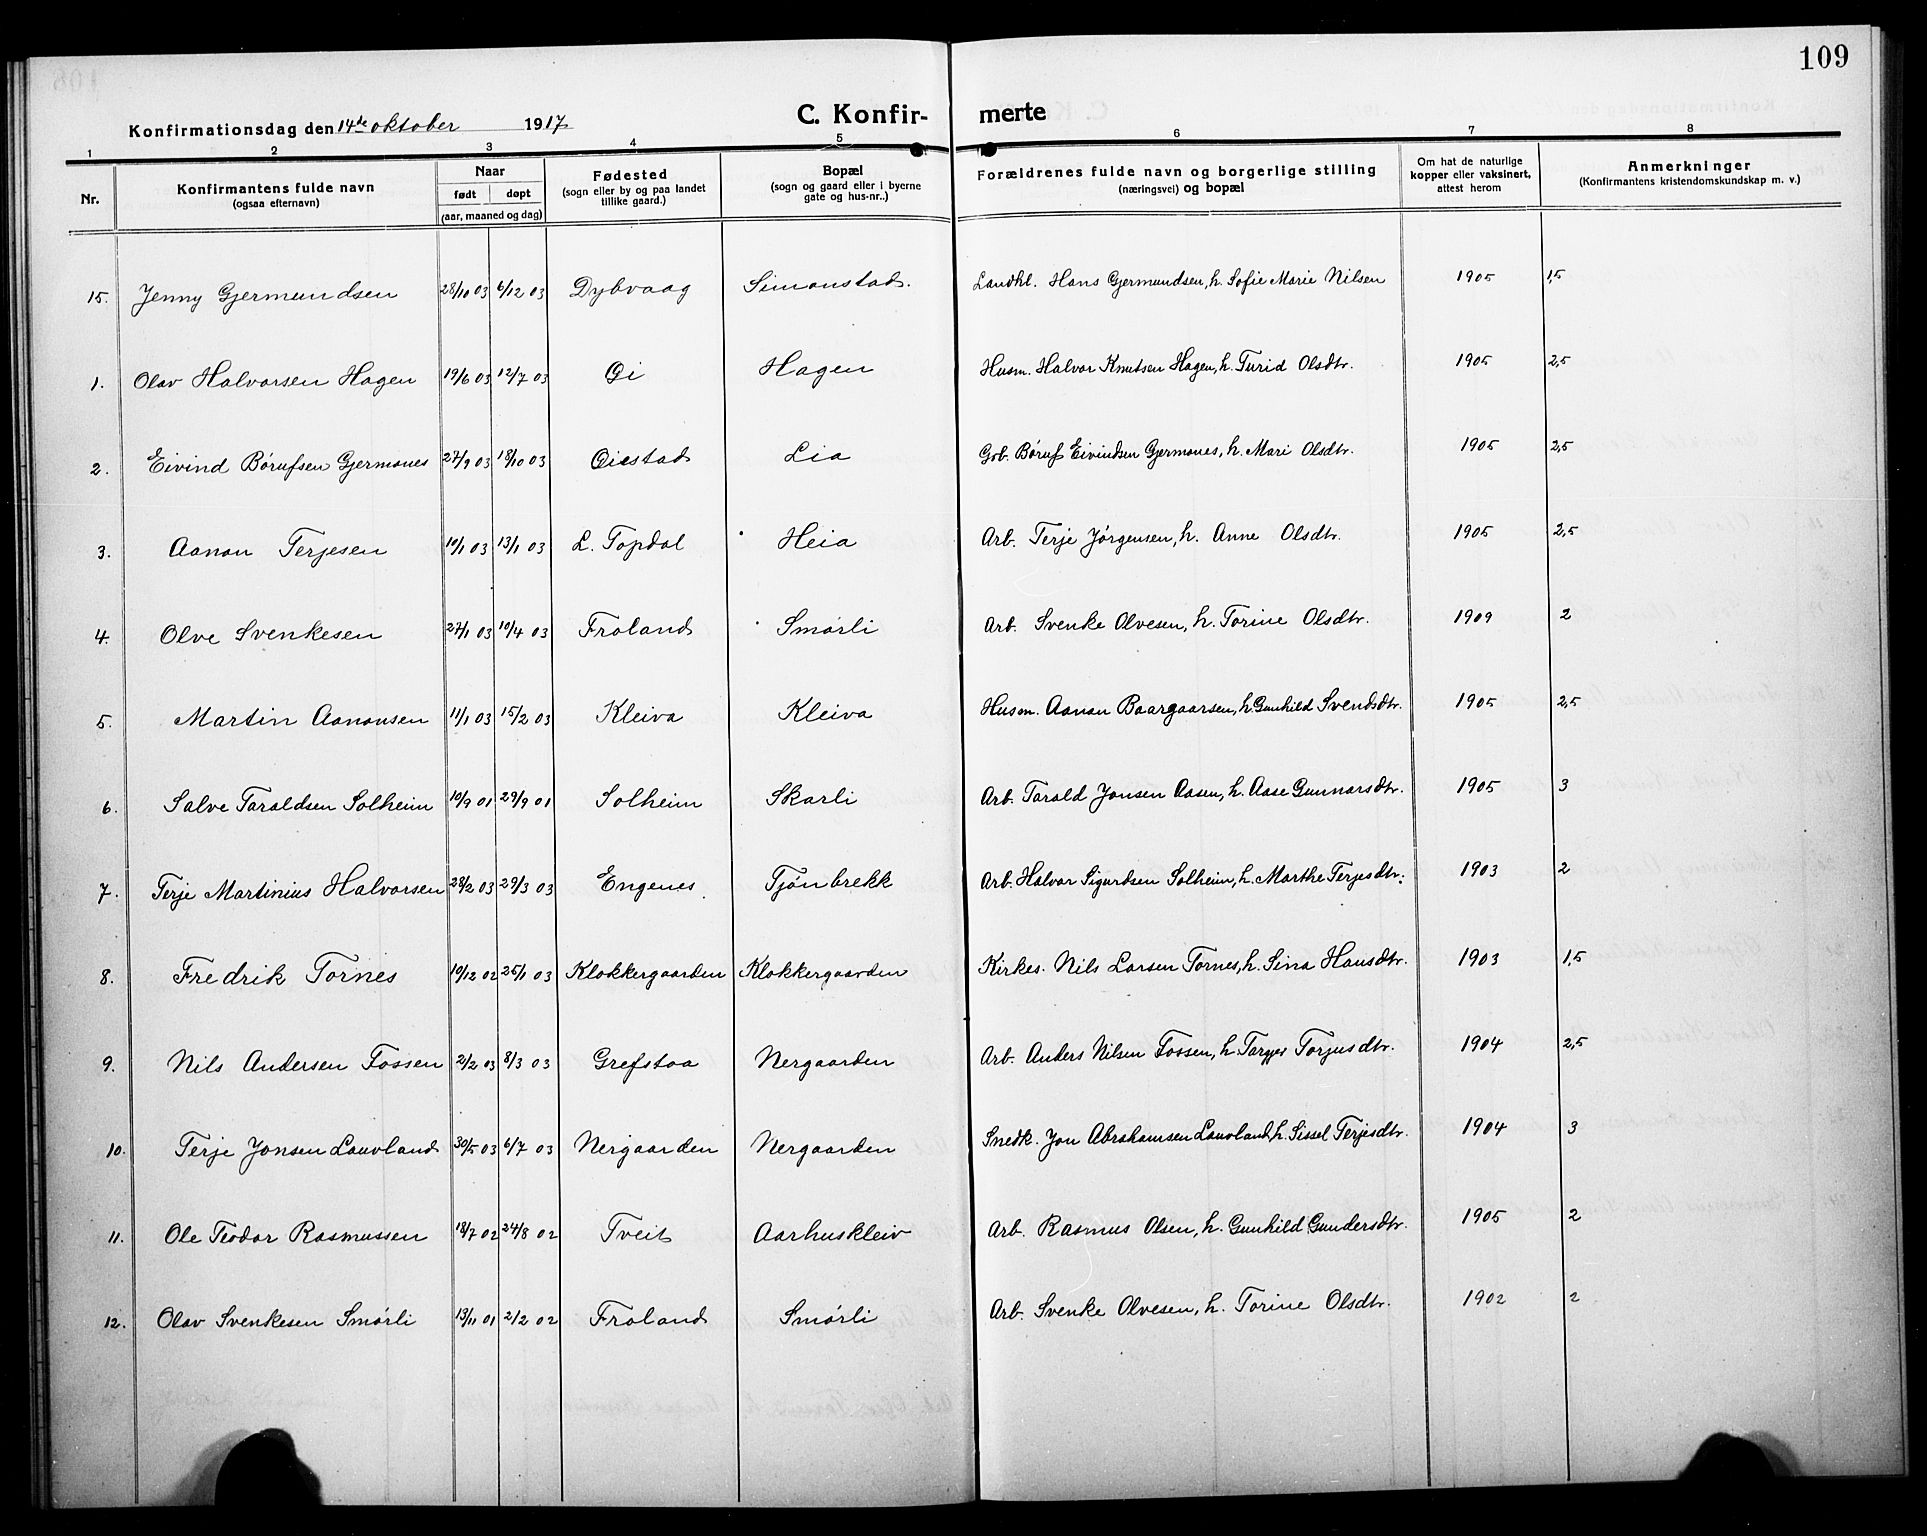 109
Konfirmationsdag den 14de oktober 1917 C. Konfir- merte
1 2 3 4 5 6 7 8
Nr. Konfirmantens fulde navn (ogsaa efternavn) Naar født døpt (aar, maaned og dag) Fødested (sogn eller by og paa landet tillike gaard.) Bopæl (sogn og gaard eller i byerne gate og hus-nr..) Forældrenes fulde navn og borgerlige stilling (næringsvei) og bopæl Om hat de naturlige kopper eller vaksinert, attest herom Anmerkninger (Konfirmantens kristendomskundskap m. v.)
15. Jenny Gjermundsen 28/10 03 6/12 03 Dybvaag Simonstad. Landhl. Hans Gjermundsen, h. Sofie Marie Nilsen 1905 1,5
1. Olav Halvorsen Hagen 19/6 03 12/7 03 Øi Hagen Husm. Halvor Knutsen Hagen, h. Turid Olsdtr. 1905 2,5
2. Eivind Børufsen Gjermones 27/9 03 18/10 03 Øiestad Lia Grb. Børuf Eivindsen Gjermones, h. Mari Olsdtr. 1905 2,5
3. Aanon Terjesen 10/1 03 13/1 03 L. Topdal Heia Arb. Terje Jørgensen, h. Anne Olsdtr. 1905 2,5
4. Olve Svenkesen 27/1 03 10/4 03 Froland Smørli Arb. Svenke Olvesen, h. Torine Olsdtr. 1909 2
5. Martin Aanonsen 11/1 03 15/2 03 Kleiva Kleiva Husm. Aanon Baargaarsen, h. Gunhild Svendsdtr. 1905 2,5
6. Salve Taraldsen Solheim 10/9 01 29/9 01 Solheim Skarli Arb. Tarald Jonsen Aasen, h. Aase Gunnarsdtr. 1905 3
7. Terje Martinius Halvorsen 28/2 03 29/3 03 Engenes Tjønbrekk Arb. Halvor Sigurdsen Solheim, h. Marthe Terjesdtr. 1903 2
8. Fredrik Tornes 10/12 02 25/1 03 Klokkergaarden Klokkergaarden Kirkes. Nils Larsen Tornes, h. Sina Hansdtr. 1903 1,5
9. Nils Andersen Fossen 2/2 03 8/3 03 Grefstaa Nergaarden Arb. Anders Nilsen Fossen, h. Targjer Torjusdtr. 1904 2,5
10. Terje Jonsen Lauvland 30/5 03 6/7 03 Nergaarden Nergaarden Snedk. Jon Abrahamsen Lauvland, h. Sissel Terjesdtr. 1904 3
11. Ole Teodor Rasmussen 18/7 02 24/8 02 Tveit Aarhuskleiv Arb. Rasmus Olsen, h. Gunhild Gundersdtr. 1905 2
12. Olav Svenkesen Smørli 13/11 01 2/2 02 Froland Smørli Arb. Svenke Olvesen, h. Torine Olsdtr. 1902 2